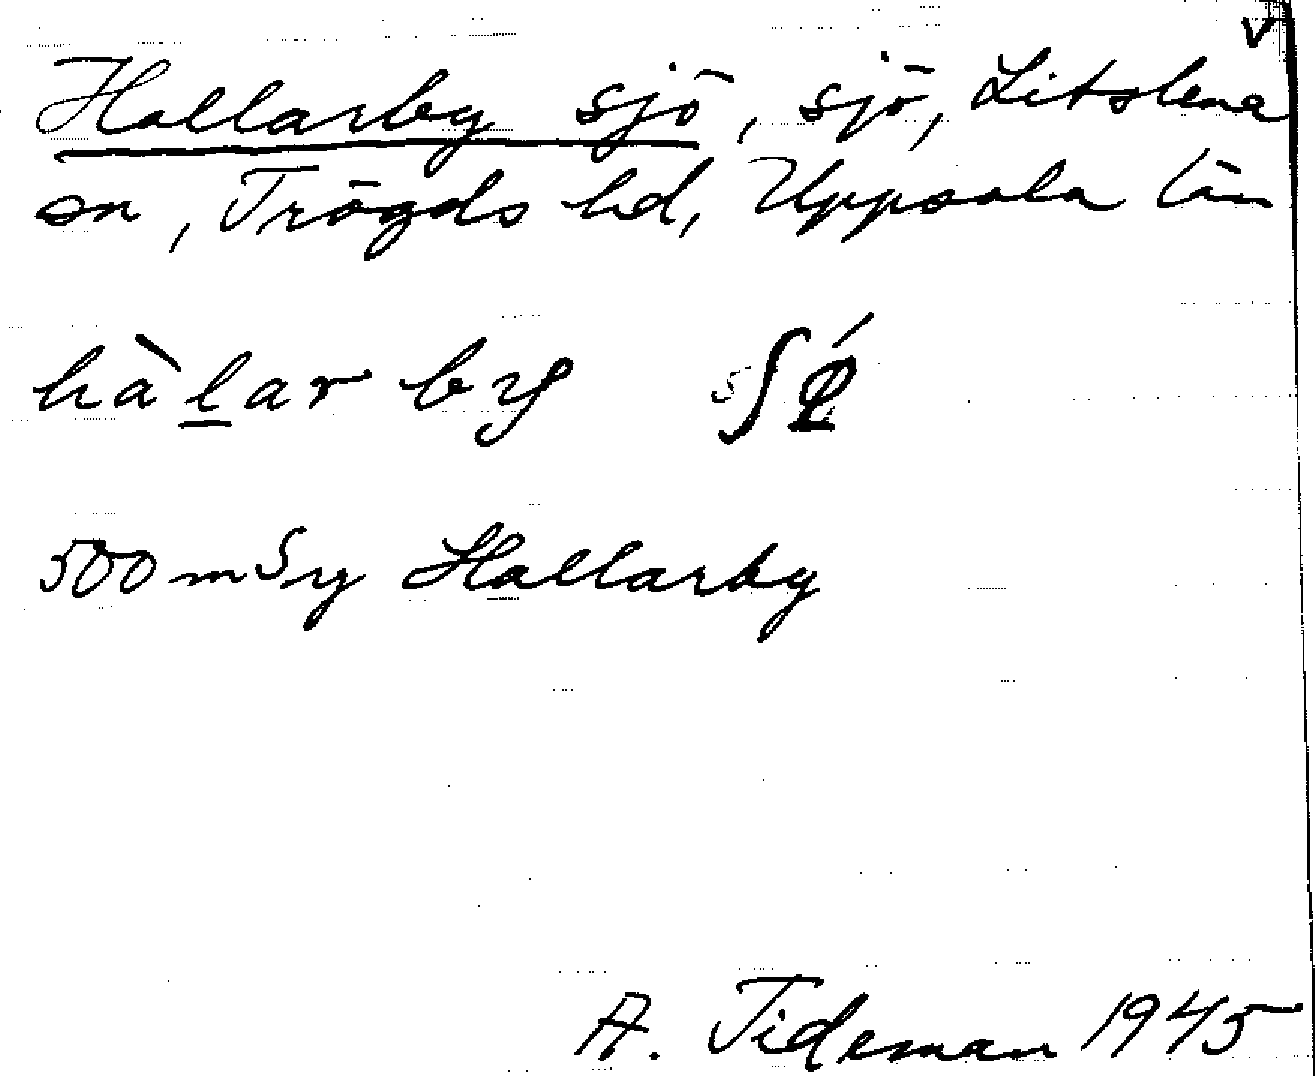 v
Hallarby sjö, sjö, Litslena
sn, Trögds hd, Uppsala län
hàl̲ar by
500 m S ry Hallarby
A. Tideman 1945